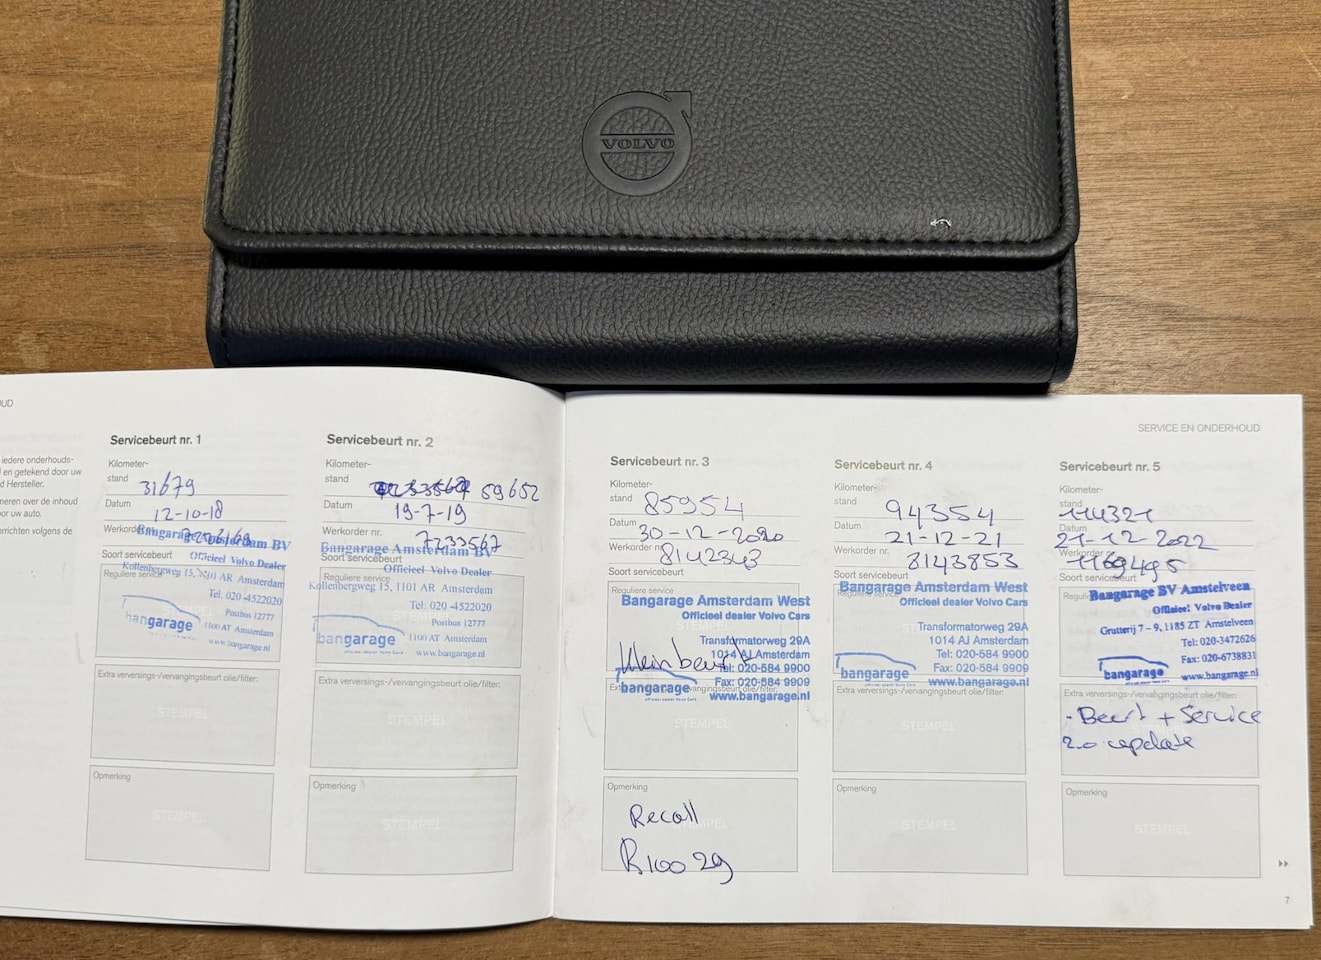 VOLVO
OUD
iedere onderhouds-
en getekend door uw
d Hersteller.
neren over de inhoud
or uw auto.
errichten volgens de
Servicebeurt nr. 1
Kilometer-
stand 31679
Datum 12-10-18
Werkorder nr.
Bangarage Amsterdam BV
Soort servicebeurt
Officieel Volvo Dealer
Reguliere service
Kollenbergweg 15, 1101 AR Amsterdam
Tel. 020-4522020
Postbus 12777
1100 AT Amsterdam
bangarage
www.bangarage.nl
Extra verversings-/vervangingsbeurt olie/filter:
STEMPEL
Opmerking
STEMPEL
Servicebeurt nr. 2
Kilometer-
stand 59652
Datum 19-7-19
Werkorder nr. 7233567
Bangarage Amsterdam BV
Soort servicebeurt
Officieel Volvo Dealer
Reguliere service
Kollenbergweg 15, 1101 AR Amsterdam
Tel: 020 -4522020
Postbus 12777
1100 AT Amsterdam
bangarage
www.bangarage.nl
Extra verversings-/vervangingsbeurt olie/filter:
STEMPEL
Opmerking
STEMPEL
SERVICE EN ONDERHOUD
Servicebeurt nr. 3
Kilometer-
stand 85954
Datum 30-12-2020
Werkorder nr. 8142343
Soort servicebeurt
Reguliere service
Bangarage Amsterdam West
Officieel dealer Volvo Cars
Transformatorweg 29A
1014 AJ Amsterdam
Kleinbeurt
Tel: 020-584 9900
Fax: 020-584 9909
bangarage
www.bangarage.nl
Extra verversings-/vervangingsbeurt olie/filter:
STEMPEL
Opmerking
Recall
STEMPEL
R10029
Servicebeurt nr. 4
Kilometer-
stand 94354
Datum 21-12-21
Werkorder nr. 8143853
Soort servicebeurt
Bangarage Amsterdam West
Reguliere service
Officieel dealer Volvo Cars
Transformatorweg 29A
1014 AJ Amsterdam
Tel: 020-584 9900
Fax: 020-584 9909
bangarage
www.bangarage.nl
Extra verversings-/vervangingsbeurt olie/filter:
STEMPEL
Opmerking
STEMPEL
Servicebeurt nr. 5
Kilometer-
stand 114321
Datum
21-12-2022
Werkorder nr. 1169495
Soort servicebeurt
Bangarage BV Amstelveen
Officieel Volvo Dealer
Grutterij 7 - 9, 1185 ZT Amstelveen
Tel: 020-3472626
Fax: 020-6738831
bangarage
www.bangarage.nl
Extra verversings-/vervangingsbeurt olie/filter:
- Beurt + Service
2.0 update
Opmerking
STEMPEL
7